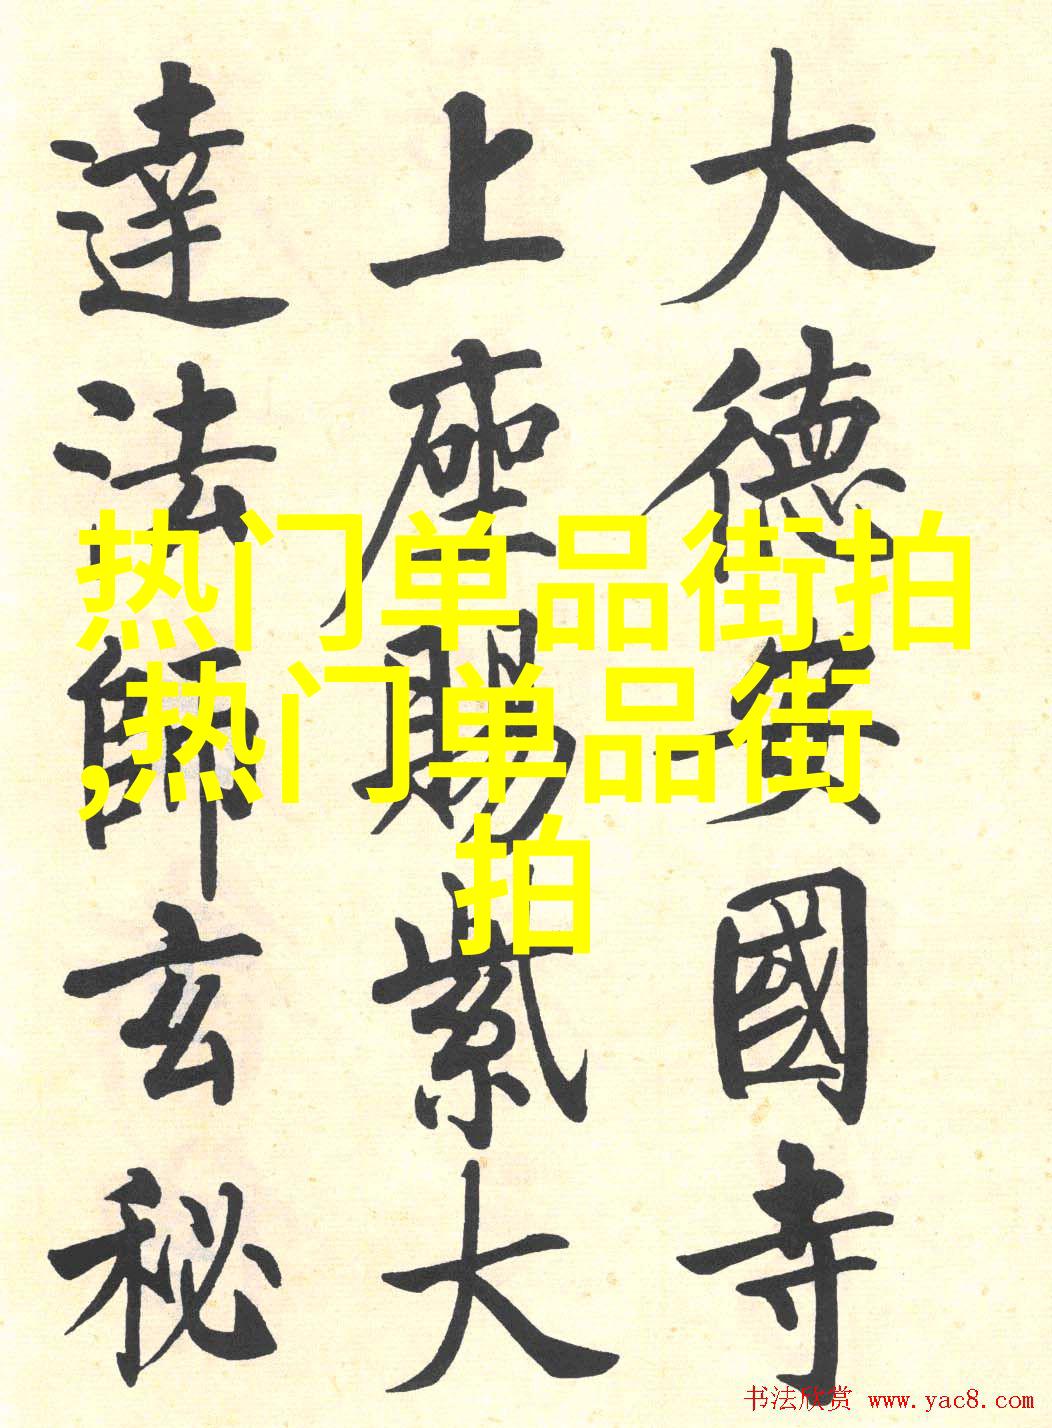 大德安國寺
上座賜紫大
達法師玄秘
热门单品街拍
,热门单品街
拍
书法欣赏 www.yac8.com